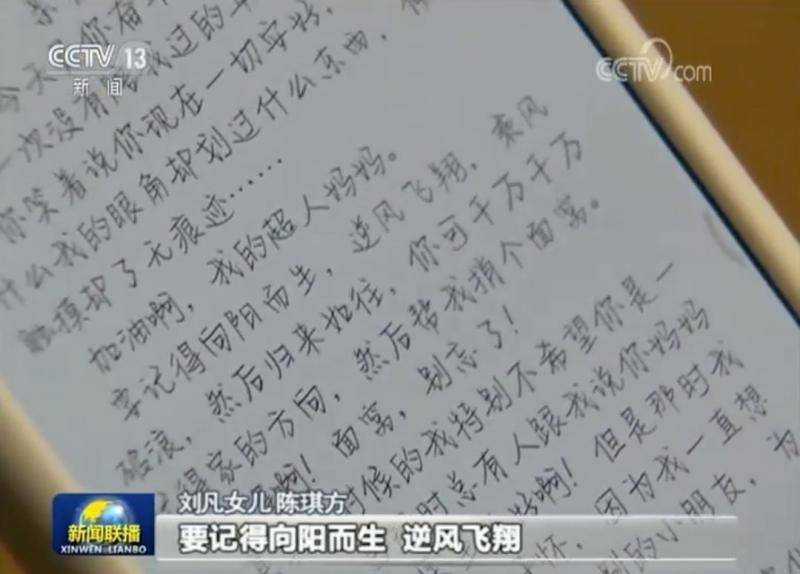 CCTV 13
新闻
CCTV.com
今天
你
一次没有
过的
你笑着说你现在一切安好，
什么我的眼角却划过什么东西，
触摸却了无痕迹……
加油啊，我的超人妈妈。
要记得向阳而生，逆风飞翔，乘风
破浪，然后归来如往，你可千万千万
得家的方向，然后帮我捎个面窝。
啊！面窝，别忘了！
时候的我特别不希望你是一
时总有人跟我说你妈妈
啊！但是那时我
怀，因为我一直想
别的小朋友，为
刘凡女儿 陈琪方
要记得向阳而生 逆风飞翔
新闻联播
XINWEN LIANBO